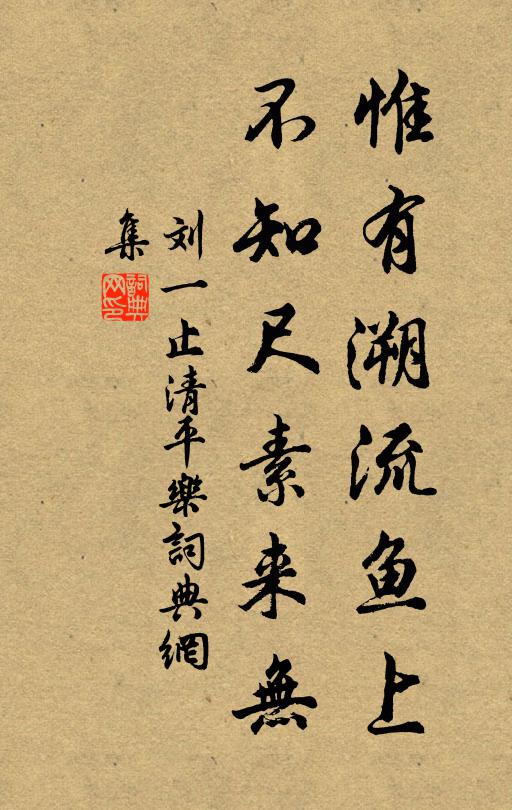 惟有溯流鱼上
不知尺素来無
刘一止清平樂詞典網
集
詞典
网印